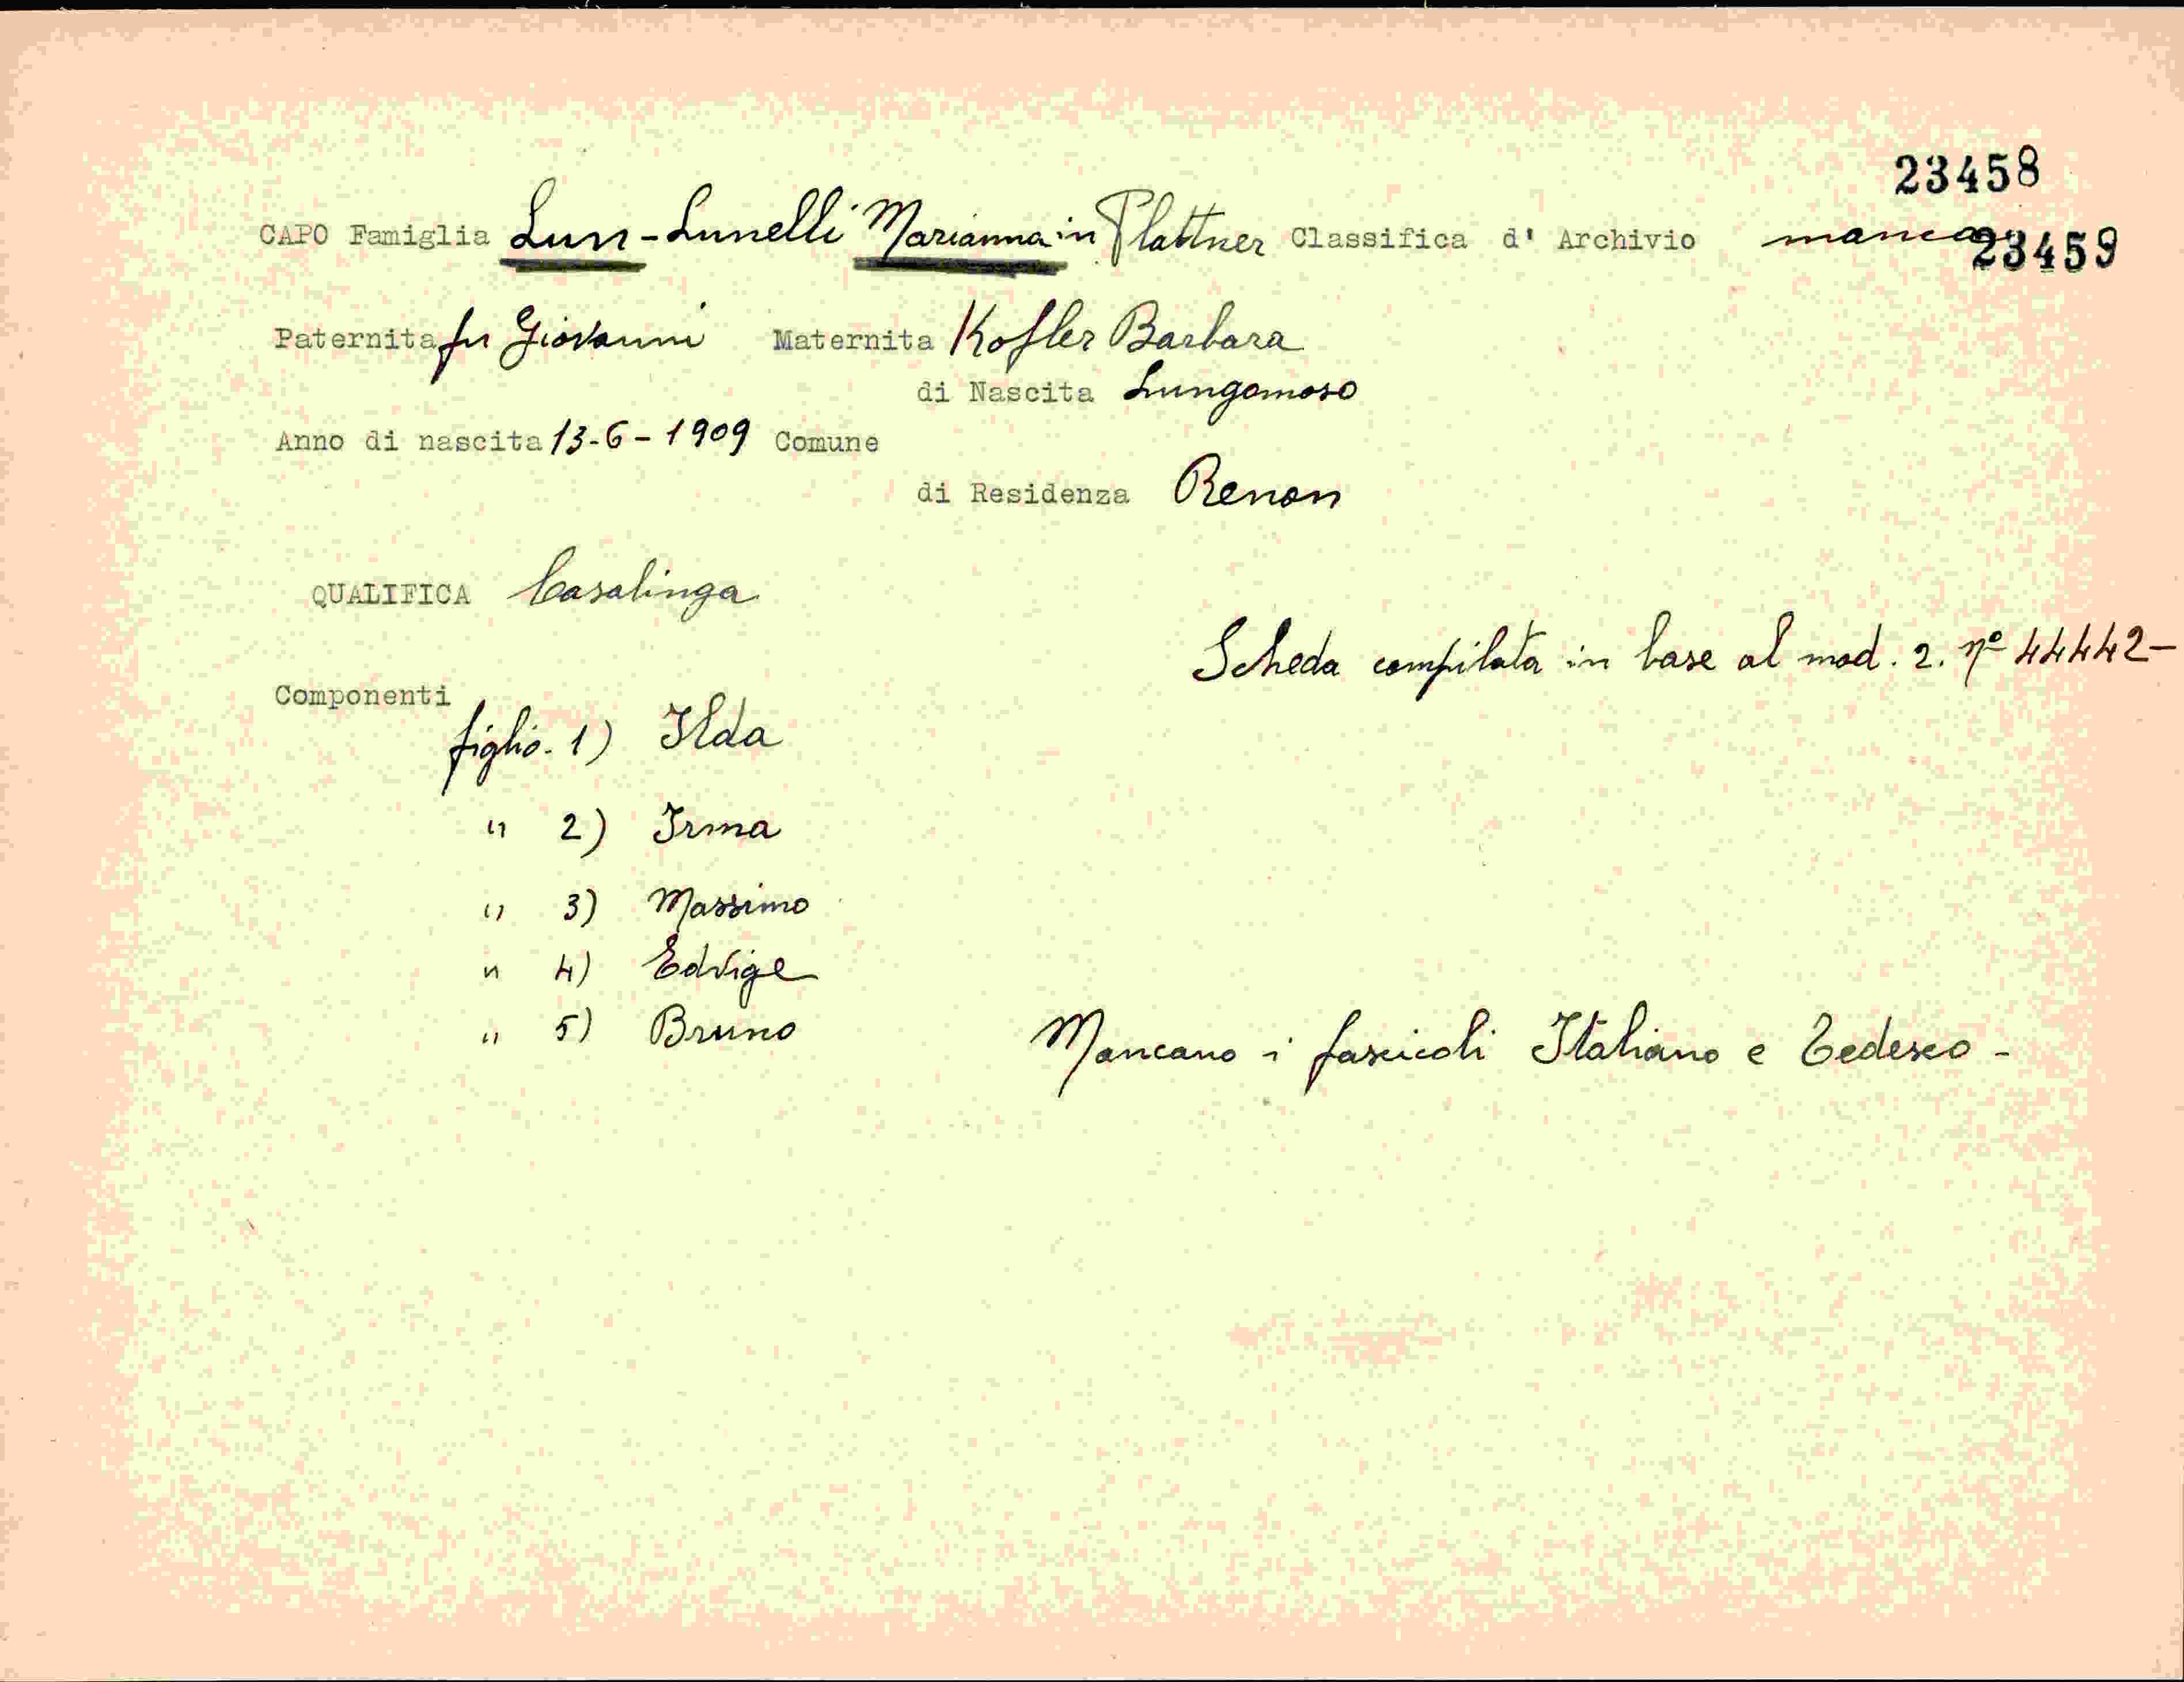 23458
CAPO Famiglia Lun-Lunelli Marianna in Plattner Classifica d' Archivio manca
23459
Paternita fu Giovanni Maternita Kofler Barbara
di Nascita Lungomoso
Anno di nascita 13-6-1909 Comune
di Residenza Renon
QUALIFICA Casalinga
Scheda compilata in base al mod. 2. nº 44442-
Componenti
figlio. 1) Ilda
" 2) Irma
" 3) Massimo
" 4) Edvige
" 5) Bruno
Mancano i fascicoli Italiano e Tedesco -